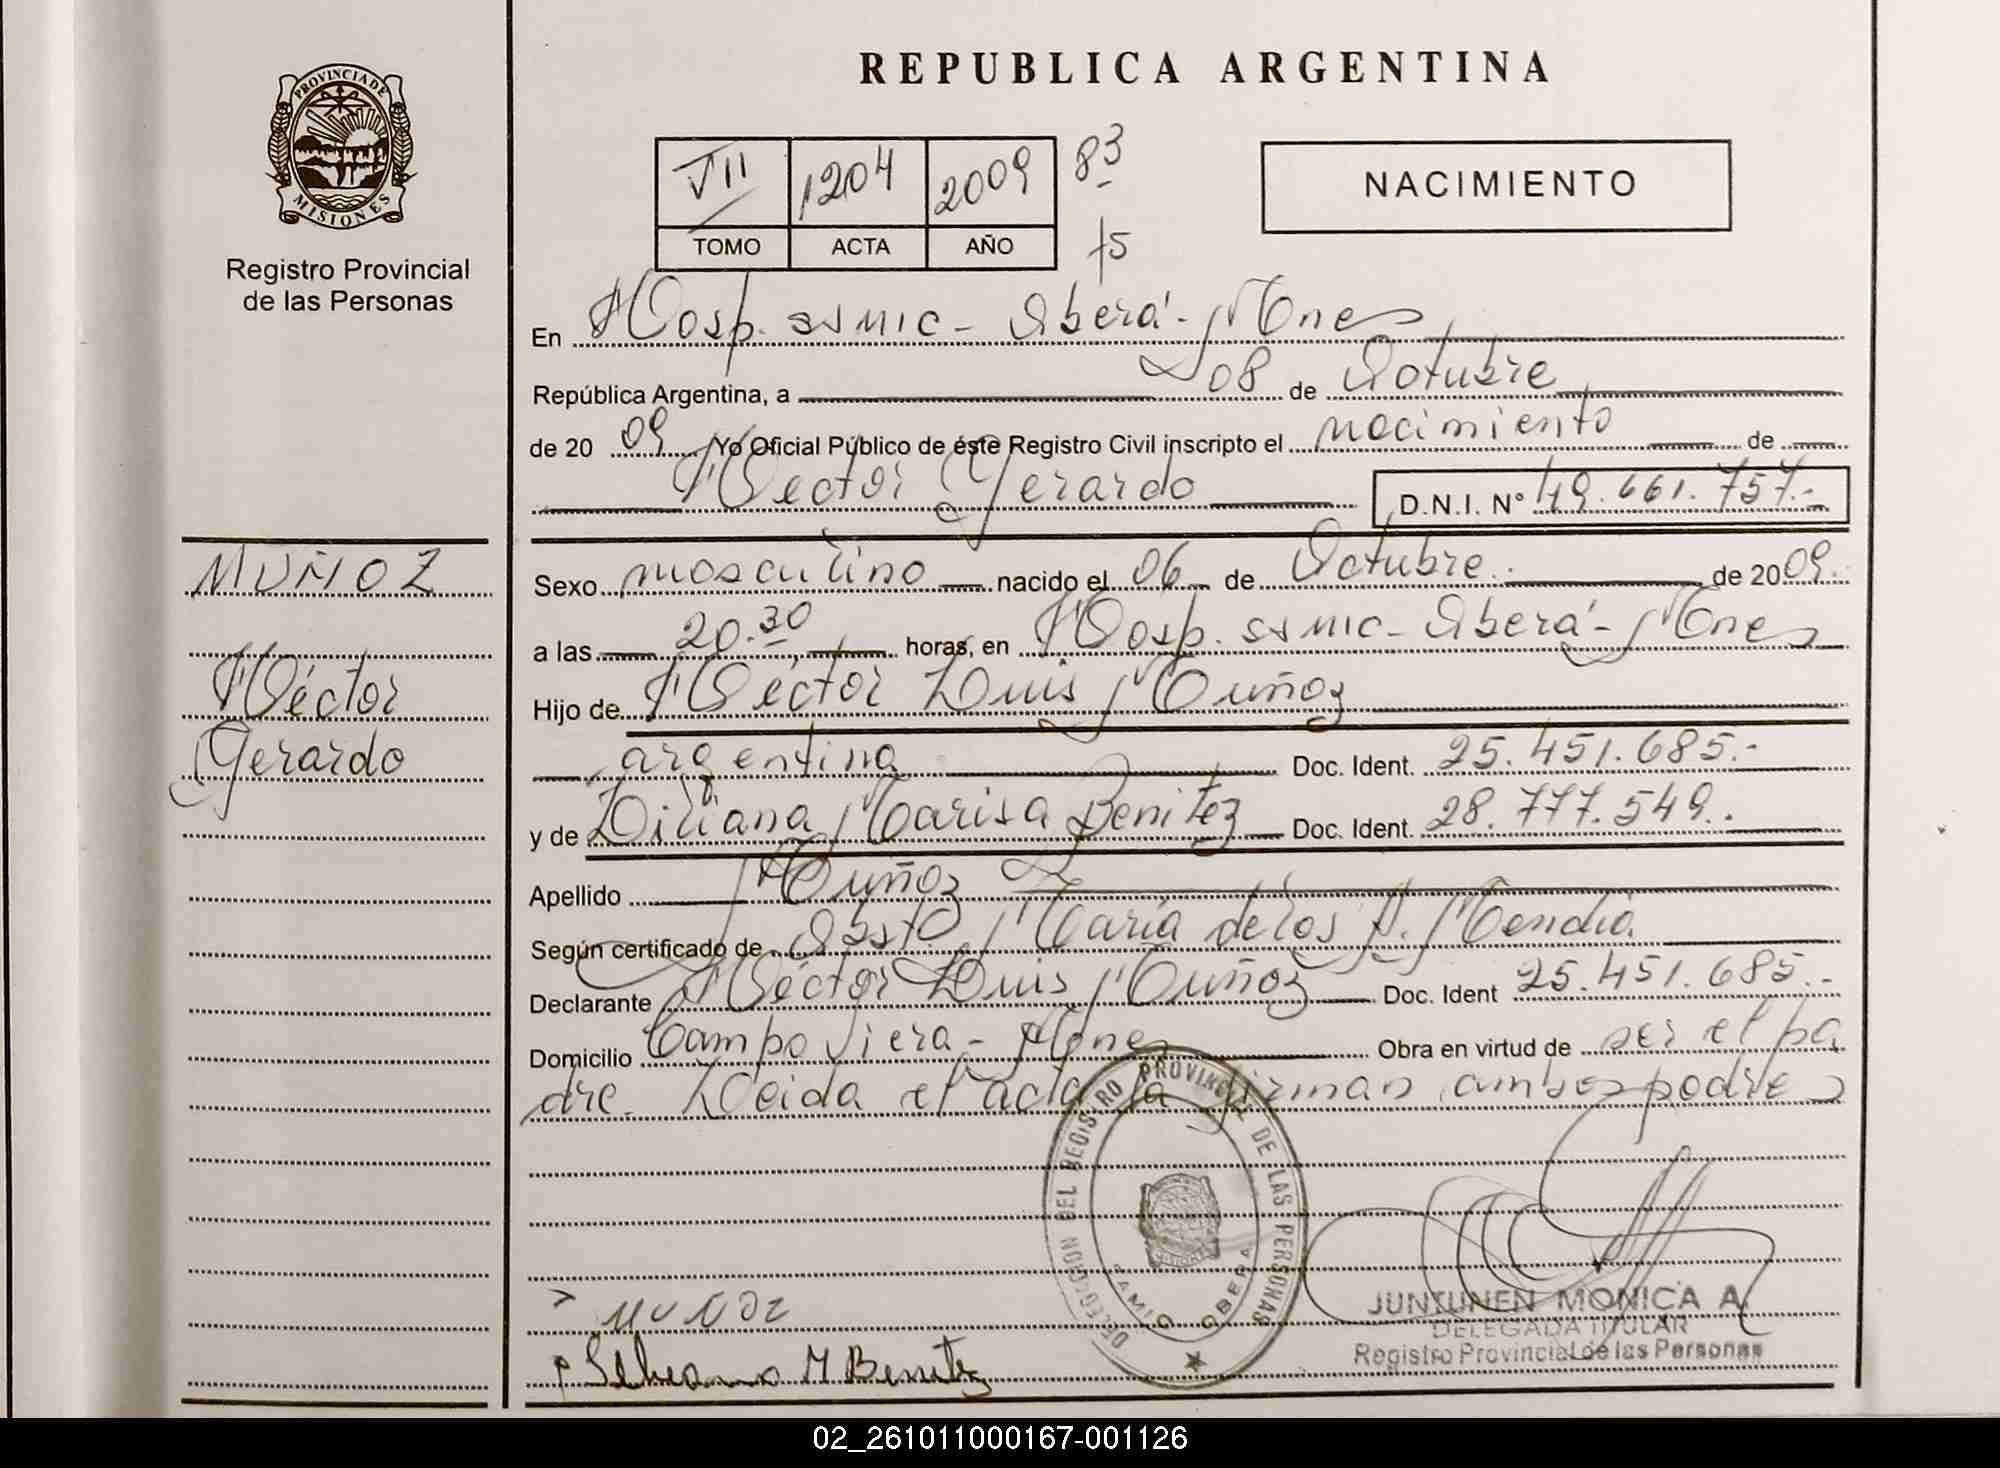 REPUBLICA ARGENTINA
PROVINCIA DE MISIONES
Registro Provincial
de las Personas
VII 1204 2009 83
TOMO ACTA AÑO 75
NACIMIENTO
En Hosp. SSMIC - Oberá - Mnes
República Argentina, a 08 de Octubre
de 20 09 Yo Oficial Público de éste Registro Civil inscripto el nacimiento de
Héctor Gerardo D.N.I. Nº 49.661.757.-
MUÑOZ
Héctor
Gerardo
Sexo masculino nacido el 06 de Octubre de 2009.
a las 20.30 horas, en Hosp. SSMIC - Oberá - Mnes
Hijo de Héctor Luis Muñoz
argentina Doc. Ident. 25.451.685.-
y de Liliana Marisa Benitez Doc. Ident. 28.777.549.-
Apellido Muñoz
Según certificado de Obst. María de los A. Mendia.
Declarante Héctor Luis Muñoz Doc. Ident 25.451.685.-
Domicilio Campo Viera - Mnes Obra en virtud de ser el pa
dre. Leida el acta la firman ambos padres
DELEGACION DEL REGISTRO PROVINCIAL DE LAS PERSONAS
OBERA
MUÑOZ
M Benitez
JUNTUNEN MONICA A.
DELEGADA TITULAR
Registro Provincial de las Personas
02_261011000167-001126